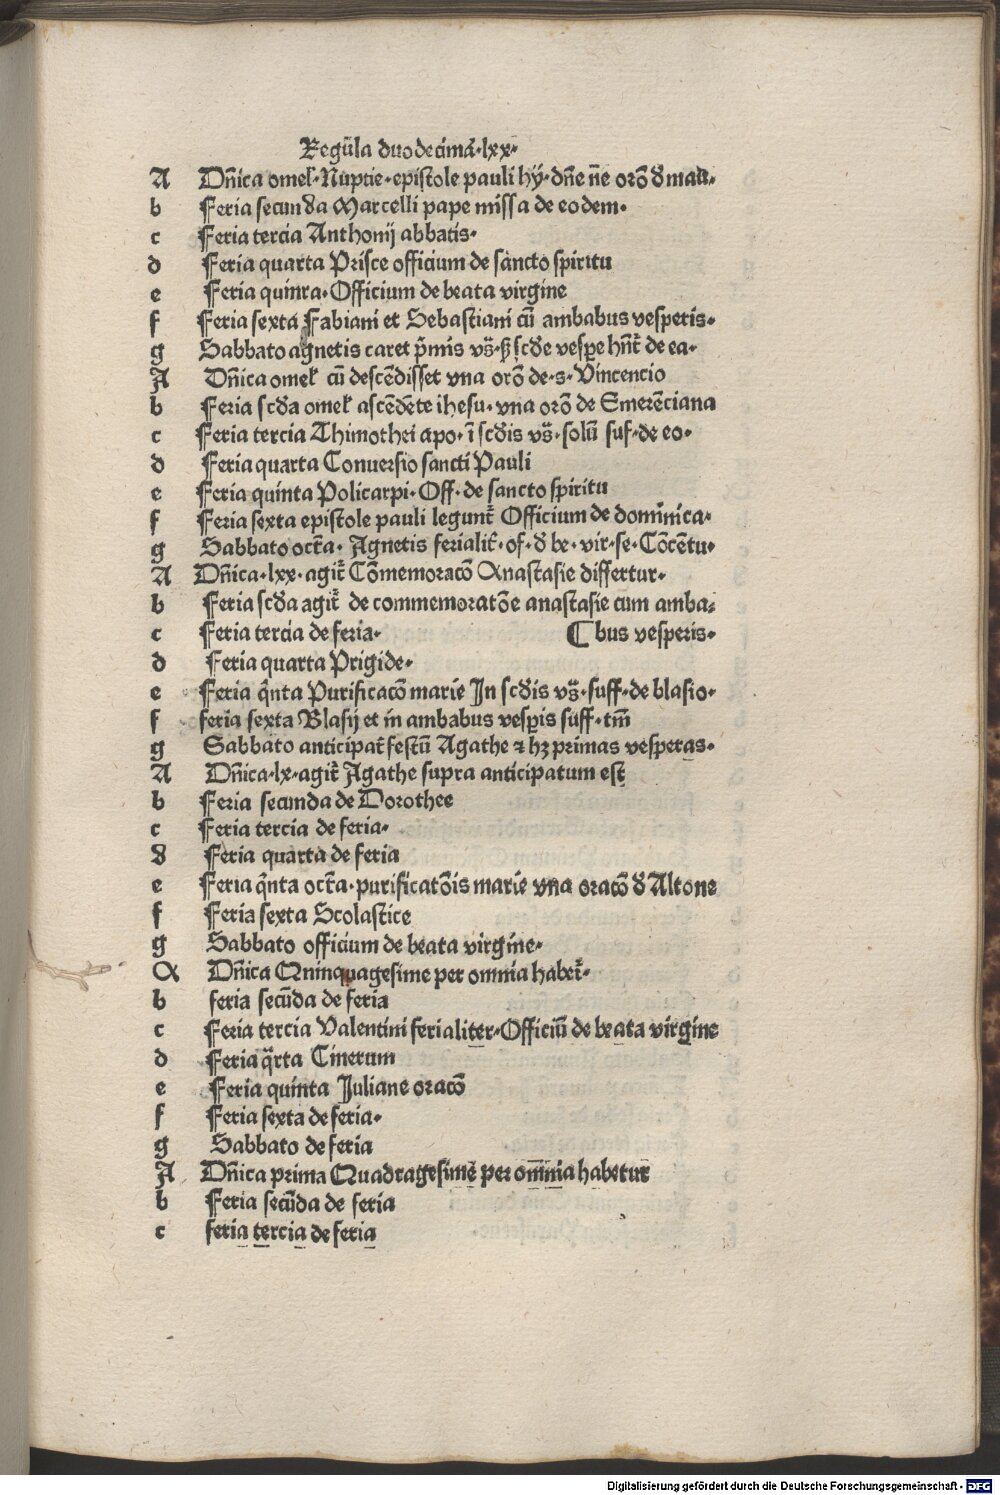 Regl̃a duodecima·lxx·
A Dn̄ica omel̛·Nuptie·epistole pauli hẏ·dn̄e n̄e orō d̛ mart̛·
b Feria secunda Marcelli pape missa de eodem·
c Feria tercia Anthonij abbatis·
d Feria quarta Prisce officium de sancto spiritu
e Feria quinta·Officium de beata virgine
f Feria sexta Fabiani et Sebastiani cū ambabus vesperis·
g Sabbato agnetis caret p̄mis vs̄·ꝫ scd̛e vespe hn̄t̛ de ea·
A Dn̄ica omel̛ cū descēdisset vna orō de·s·Vincencio
b Feria scd̛a omel̛ ascēdēte ihesu·vna orō de Emerēciana
c Feria tercia Thimothei apo·ī scd̛is vs̄·solū suf·de eo·
d Feria quarta Conuersio sancti Pauli
e Feria quinta Policarpi·Off·de sancto spiritu
f Feria sexta epistole pauli legunt̛ Officium de dominica·
g Sabbato octa̅·Agnetis ferialit̛·of·d̛ be·vir·se·Cōcētu·
A Dn̄ica·lxx·agit̛ Cōmemoracō Anastasie differtur·
b Feria scd̛a agit̛ de commemoratōe anastasie cum amba⸗
c Feria tercia de feria· ⸿bus vesperis·
d Feria quarta Prigide·
e Feria q̄nta Purificacō marie In scd̛is vs̄·suff·de blasio·
f feria sexta Blasij et in ambabus vesp̄is suff·tm̄
g Sabbato anticipat̛ festū Agathe ⁊ hꝫ primas vesperas·
A Dn̄ica·lx·agit̛ Agathe supra anticipatum est
b Feria secunda de Dorothee
c Feria tercia de feria·
d Feria quarta de feria
e Feria q̄nta octa̅·purificatōis marie vna oracō d̛ Altone
f Feria sexta Scolastice
g Sabbato officium de beata virgine·
A Dn̄ica Qninquagesime per omnia habet̛·
b feria secūda de feria
c Feria tercia Valentini ferialiter·Officiū de beata virgine
d Feria q̄rta Cinerum
e Feria quinta Juliane oracō
f Feria sexta de feria·
g Sabbato de feria
A Dn̄ica prima Quadragesime per omnia habetur
b Feria secūda de feria
c feria tercia de feria
Digitalisierung gefördert durch die Deutsche Forschungsgemeinschaft - DFG